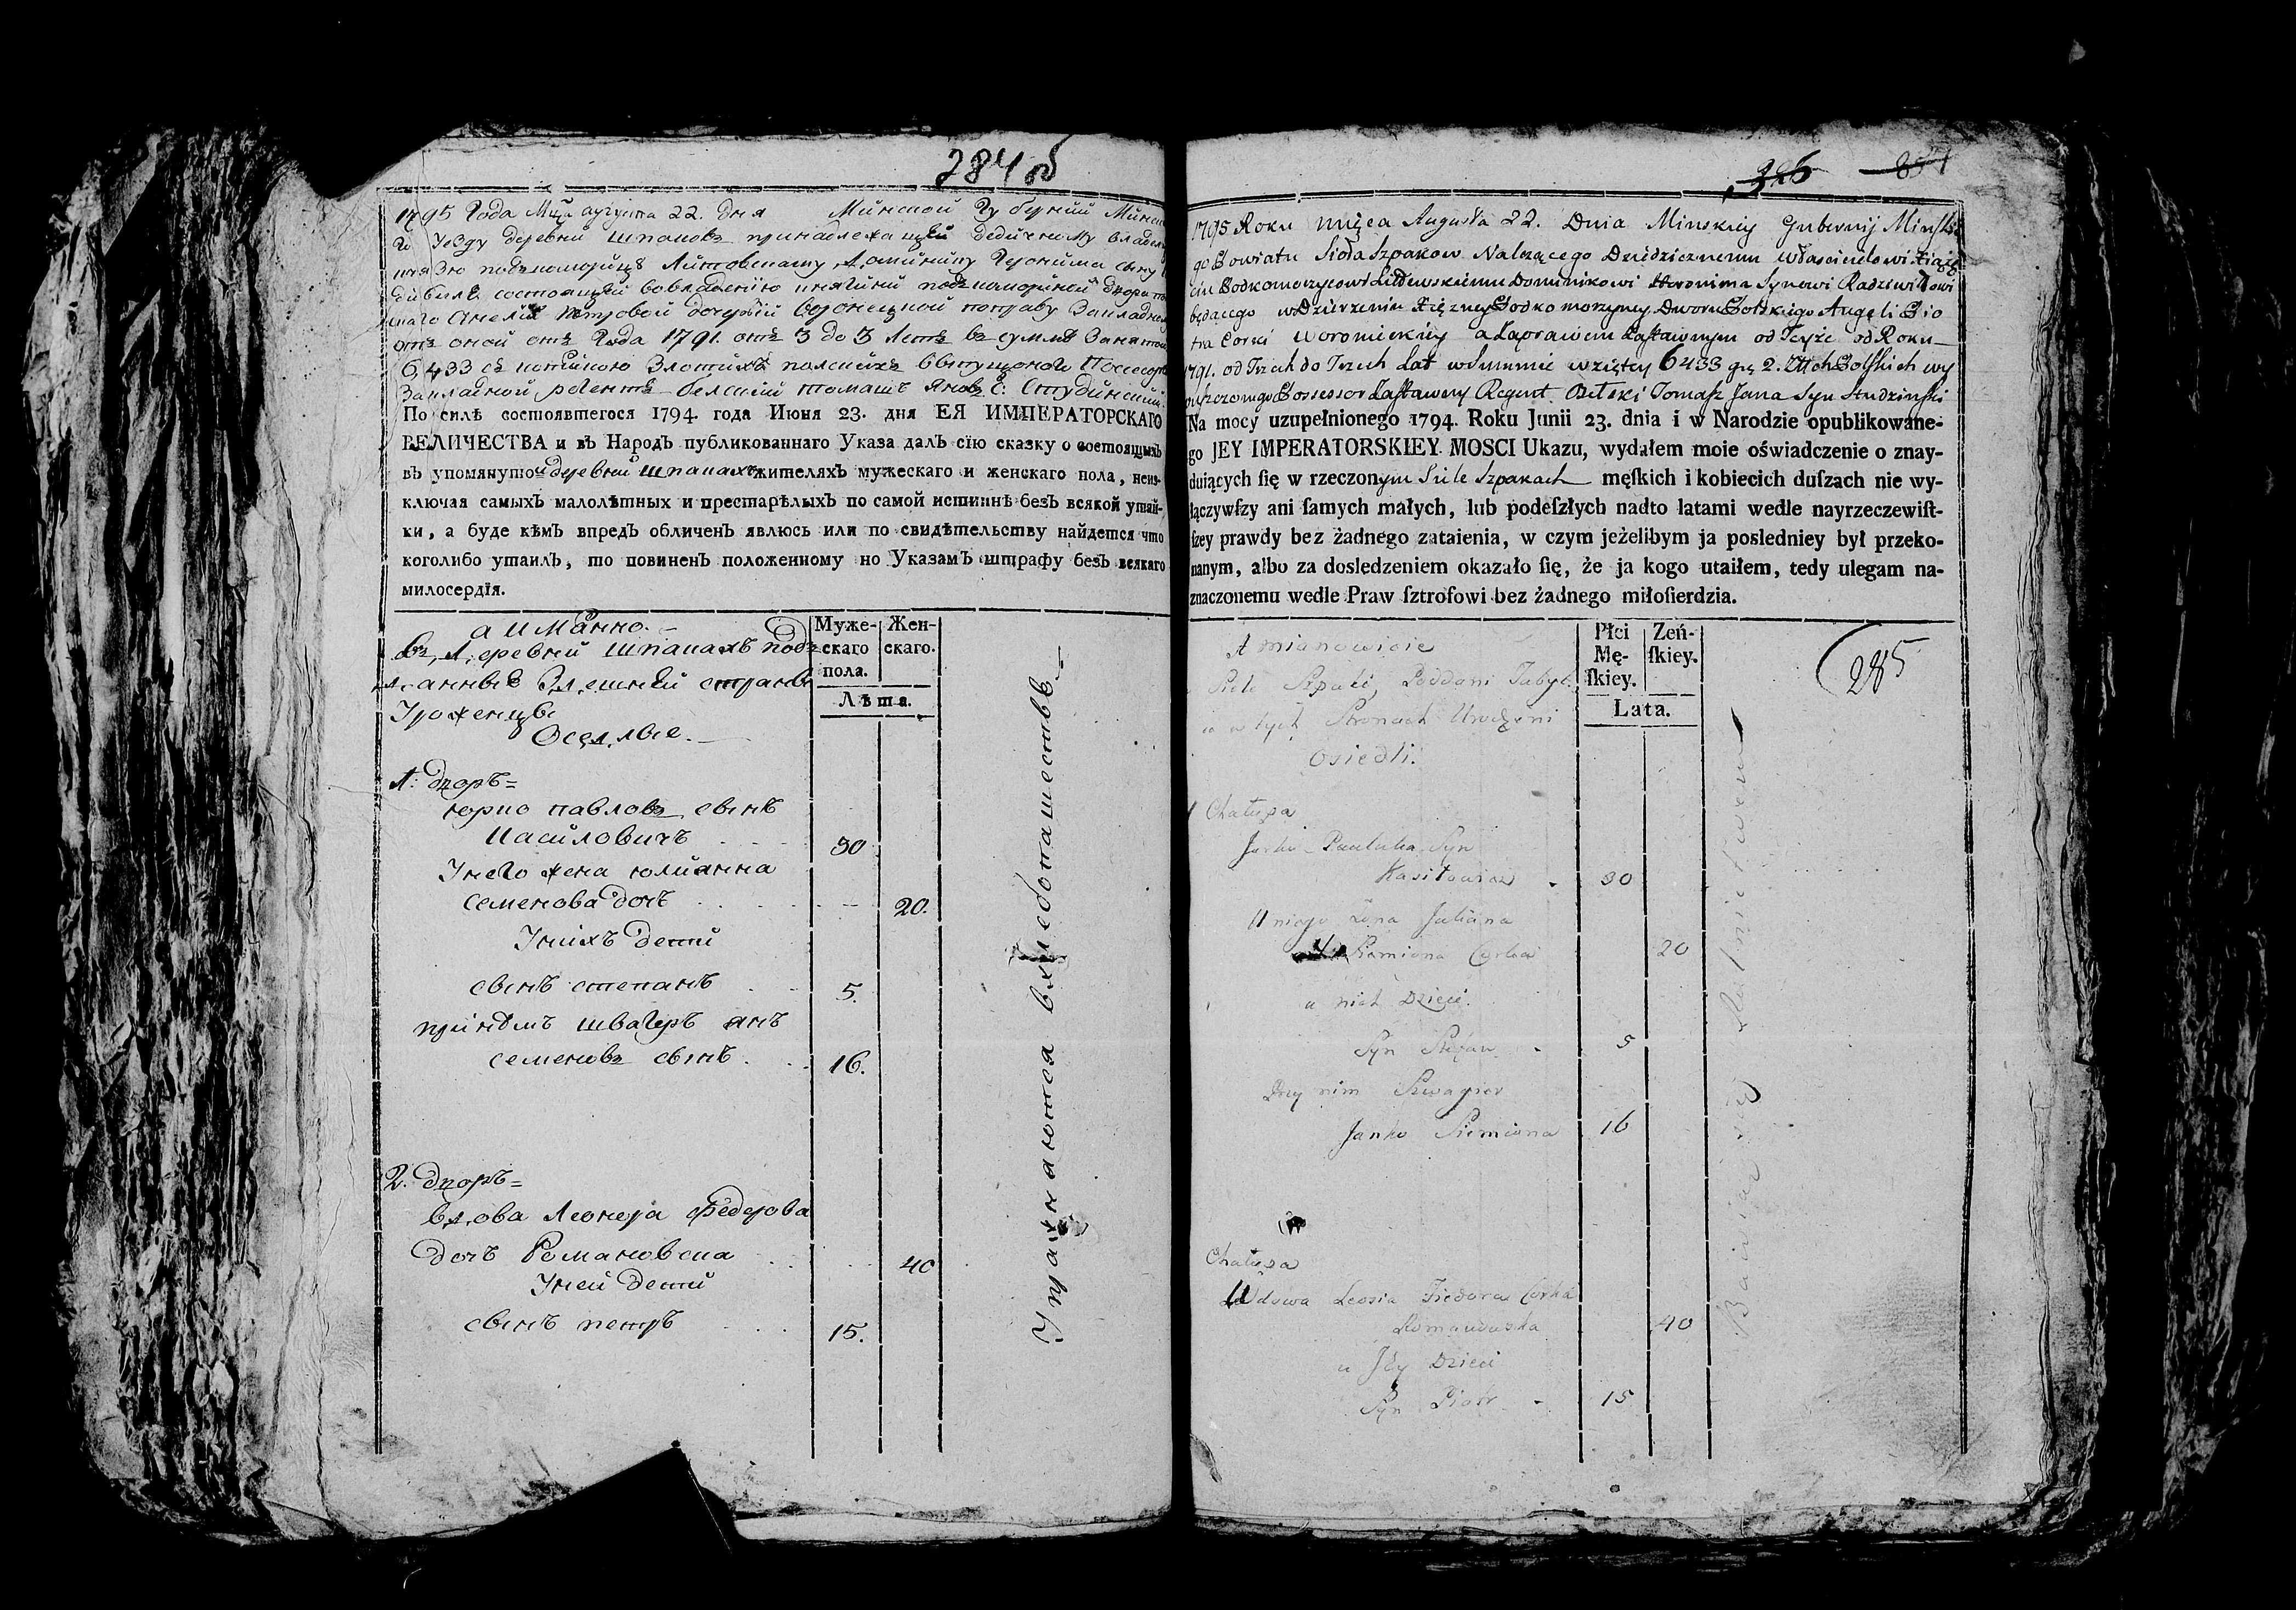 284 об
1795 Года Мца августа 22. дня Минской Губернии Минска
го Уезду деревни Шпаковъ принадлежащей дедичному
подкоморицу Литовскому Доминику Геронима сыну
состоящей во владению княгини подкомориной двора
Анели Петровой дочерии
отъ оной отъ Года 1791. отъ 3 до 3 Летъ въ сумме
6,433 Злотыхъ полскихъ
Закладной регентъ белский томашъ Яновъ С: Студинский
По силѣ состоявшегося 1794. года Июня 23. дня ЕЯ ИМПЕРАТОРСКАГО
ВЕЛИЧЕСТВА и въ Народъ публикованнаго Указа далъ сїю сказку о состоящихъ
въ упомянутой деревни шпакахъ жителяхъ мужескаго и женскаго пола, неиз-
ключая самыхъ малолѣтныхъ и престарѣлыхъ по самой истиннѣ безъ всякой утай-
ки, а буде кѣмъ впредъ обличенъ явлюсь или по свидѣтельству найдется что
коголибо утаилъ, то повиненъ положенному по Указамъ штрафу безъ всякаго
милосердїя.
а имянно.
въ Деревни Шпакахъ под-
данные Здешней страны
Уроженцы
Оседлые.
Муже-
скаго
пола.
Жен-
скаго.
Лѣта.
1. дворъ
юрко павловъ сынъ
Касиловичъ 30
У него жена юлианна
семенова дочь 20.
У нихъ дети
сынъ степанъ 5.
при немъ швагеръ янъ
семеновъ сынъ 16.
2. дворъ
вдова Леонора Федорова
дочь Романовска 40
У ней дети
сынъ петръ 15.
Упражняются в хлебопашестве.
326 857
1795 Roku Miesca Augusta 22. Dnia Minskiey Gubernij Minski
go Powiatu Sioła Szpakow Należącego Dziedzicznemu Włascicielowi Xiążę
ciu Podkomorzycowi Littewskiemu Dominikowi Hieronima Synowi Radziwiłłowi
będącego w Dzierżeniu Xiężney Podkomorzyney Dworu Polskiego Angeli Pio
tra Corki Woronieckiey a Zaprawem Zastawnym od Teyże od Roku
1791. od Trzech do Trzech Lat w Summie wziętey 6433 gr. 2. Złłch Polskich wy
puszczonego Possessor Zastawny Regent Bełski Tomasz Jana Syn Studzinski
Na mocy uzupełnionego 1794. Roku Junii 23. dnia i w Narodzie opublikowane-
go JEY IMPERATORSKIEY MOSCI Ukazu, wydałem moie oświadczenie o znay-
duiących ſię w rzeczonym Siele Szpakach męſkich i kobiecich duſzach nie wy-
łączywſzy ani ſamych małych, lub podeſzłych nadto latami wedle nayrzeczewiſt-
ſzey prawdy bez żadnego zataienia, w czym jeżelibym ja posledniey był przeko-
nanym, albo za dosledzeniem okazało ſię, że ja kogo utaiłem, tedy ulegam na-
znaczonemu wedle Praw ſztrofowi bez żadnego miłoſierdzia.
A mianowicie
Siele Szpaki, Poddani
w tych Stronach Urodzeni
Osiedli.
Płci
Mę-
ſkiey.
Zeń-
ſkiey.
Lata.
285
1 Chałupa
Jurko Pauluka Syn
Kasiłowicz 30
U niego Zona Juliana
Siemiona Corka 20
u nich Dzieci
Syn Stefan 5
Przy nim Szwagier
Janko Siemiona 16
Chałupa
Wdowa Leosia Fiedora Corka
Romanowska 40
u Jey Dzieci
Syn Piotr 15
Bawią się Rolnictwem